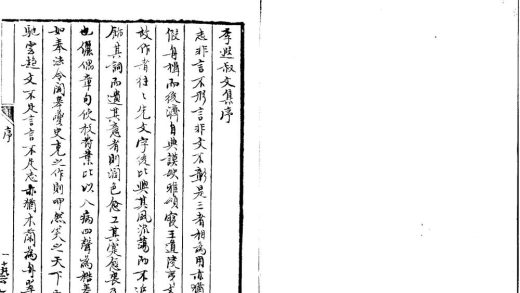 李遐叔文集序
志非言不形言非文不彰是三者相為用亦猶
假舟檝而後濟自典謨缺雅頌寢王道陵夷文
故作者往往先文字後比興其風流蕩而不返
飾其詞而遺其意者則潤色愈工其實愈喪及
也儷偶章句使枝對葉比以八病四聲為梏
如奉法令聞皋繇史克之作則呷然笑之天下
馳雲趨文不足言言不足志亦猶木蘭為舟翠
序
一